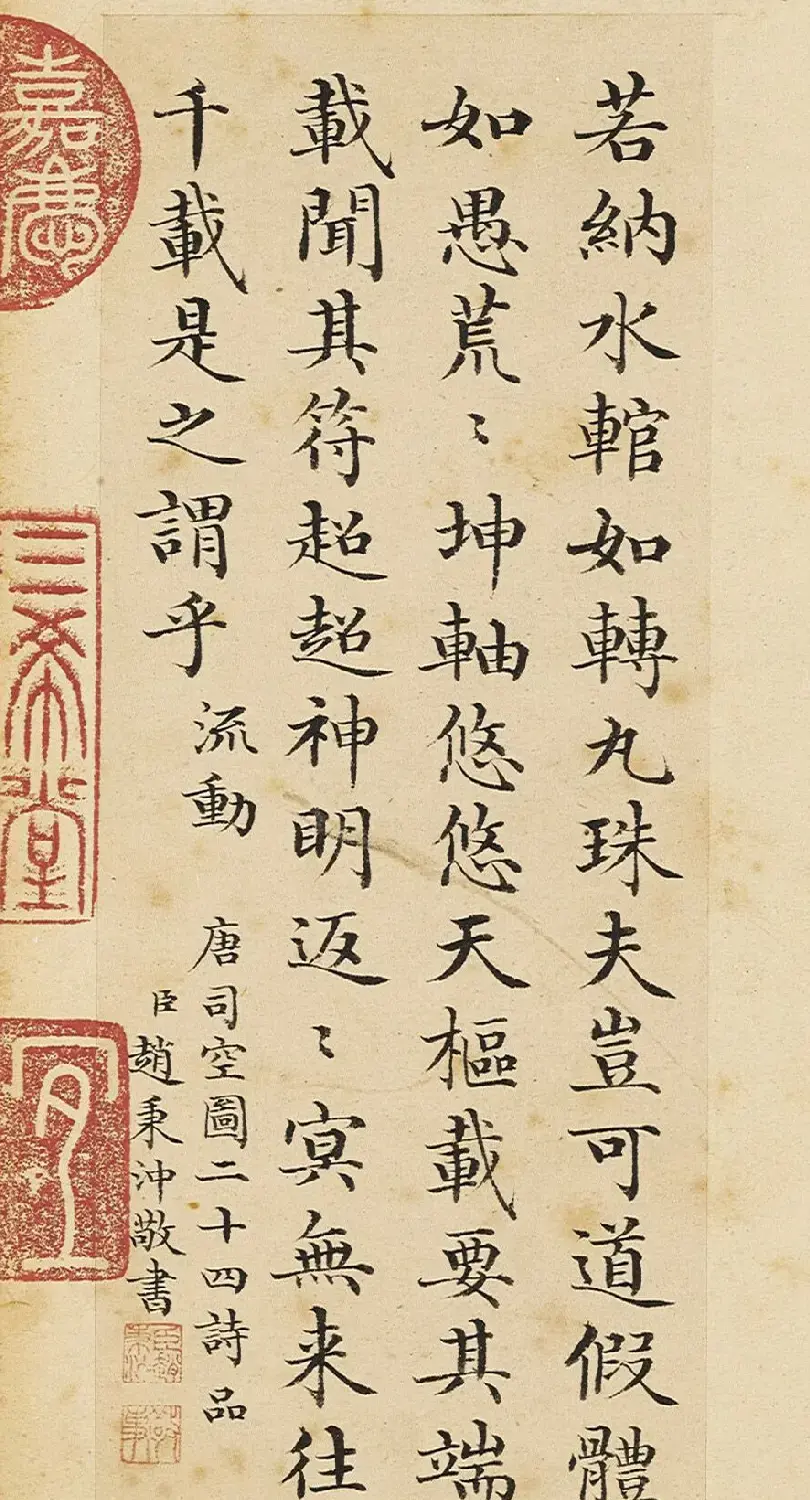 若納水輨如轉丸珠夫豈可道假體
如愚荒〻坤軸悠悠天樞載要其端
載聞其符超超神明返〻㝠無来往
千載是之謂乎 流動
唐司空圖二十四詩品
臣趙秉沖敬書
三希堂
宜